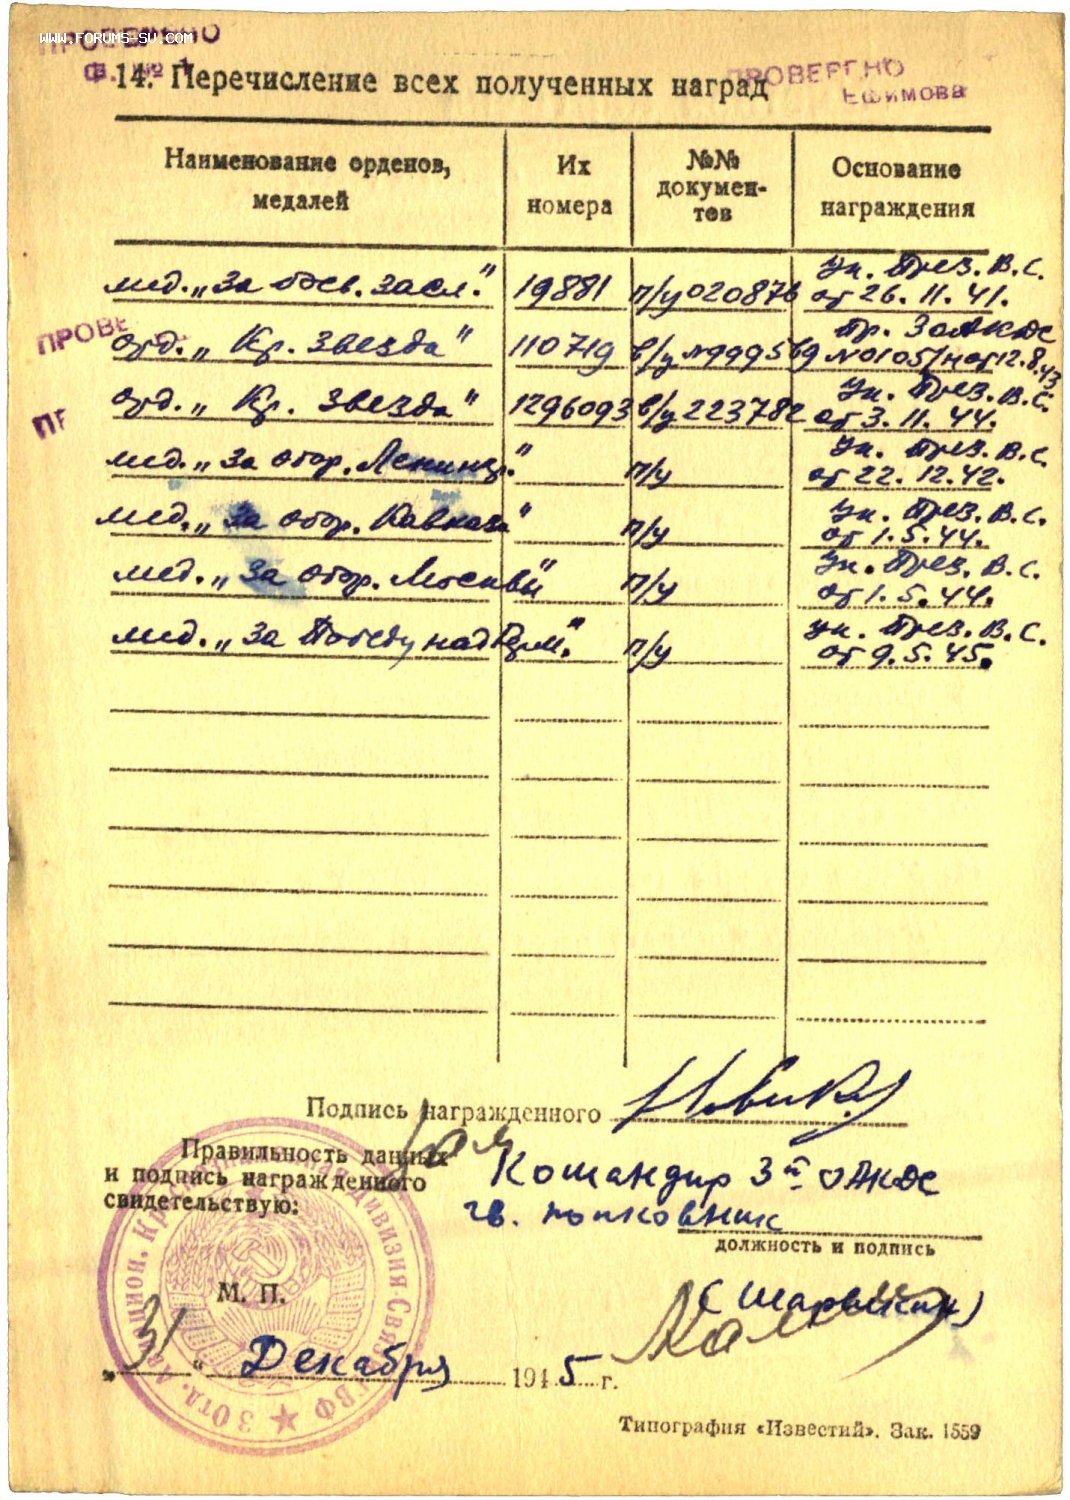 ПРОВЕРЕНО
WWW.FORUMS-SU.COM
14. Перечисление всех полученных наград
ПРОВЕРЕНО
Ефимова
Наименование орденов, медалей
Их номера
№№ докумен-
тов
Основание награждения
мед. „За боев. засл." 19881 п/у 020876 Ук. През. В.С.
от 26. 11. 41.
ПРОВЕ
орд. „Кр. Звезда" 110719 в/у №999569 Пр. 3оАКДС
№0105/н от 12.8.43
ПР
орд. „Кр. Звезда" 1296093 в/у 223782 Ук. През. В.С.
от 3. 11. 44.
мед. „За обор. Ленингр." п/у Ук. През. В.С.
от 22. 12. 42.
мед. „За обор. Кавказа" п/у Ук. През. В.С.
от 1. 5. 44.
мед. „За обор. Москвы" п/у Ук. През. В.С.
от 1. 5. 44.
мед. „За Победу над Герм." п/у Ук. През. В.С.
от 9. 5. 45.
Подпись награжденного
Правильность данных
и подпись награжденного
свидетельствую:
Командир 3й ОАКДС
гв. полковник
должность и подпись
(Шарыкин)
М. П.
„31" Декабря 1945 г.
3 Отд. Авиацион. Краснознаменная Дивизия Связи ГВФ
Типография «Известий». Зак. 1559